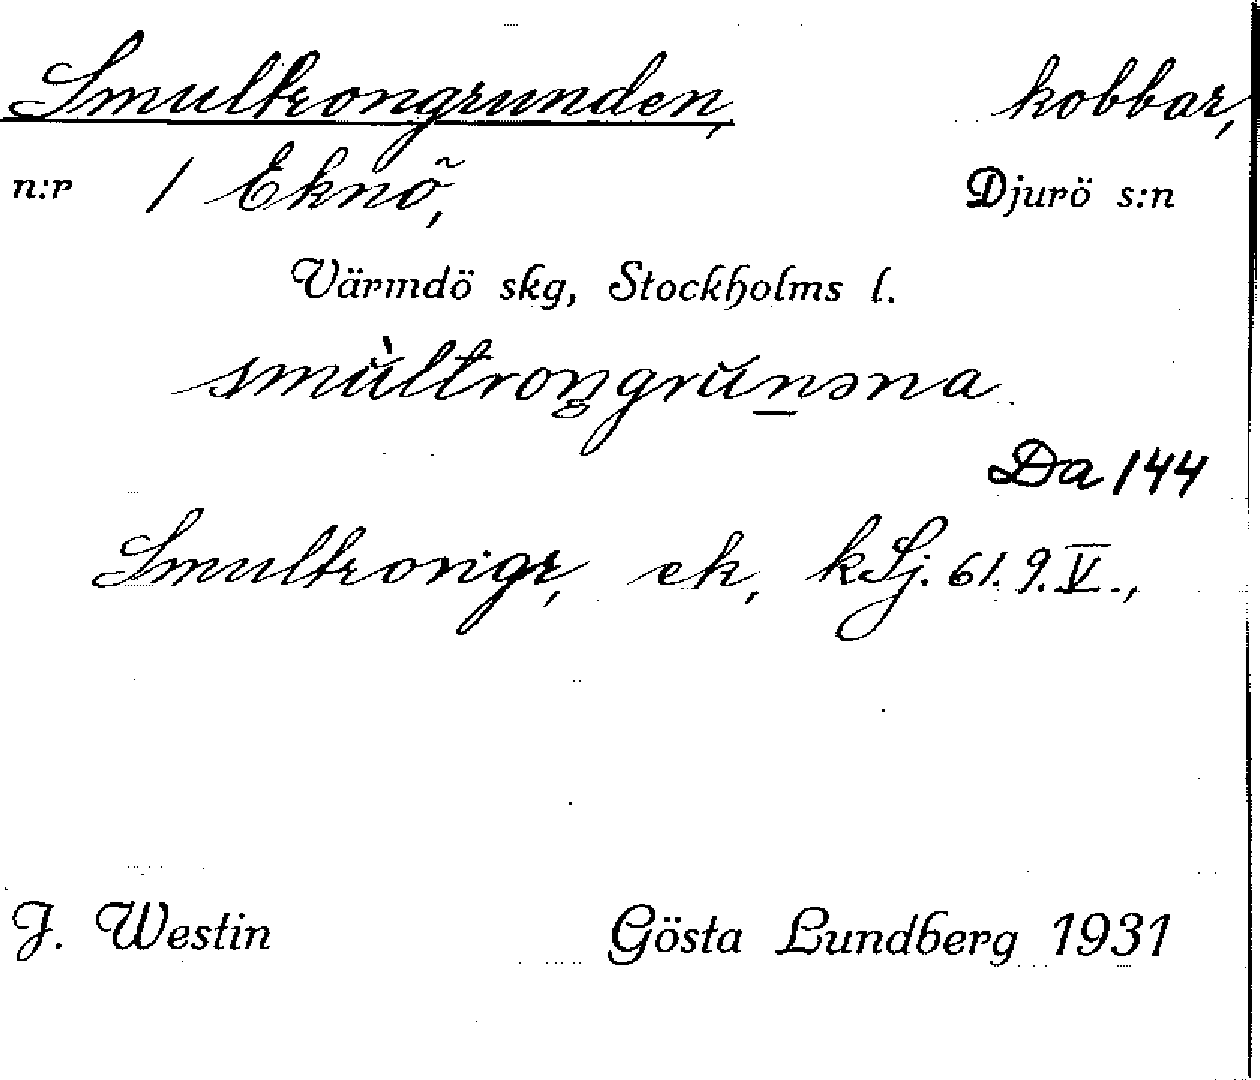 Smultrongrunden, kobbar,
n:r 1 Eknö, Djurö s:n
Värmdö skg, Stockholms l.
smùltroŋgrŭnəna
Da 144
Smultrongr, ek, kSj. 61.9.V.,
J. Westin Gösta Lundberg 1931